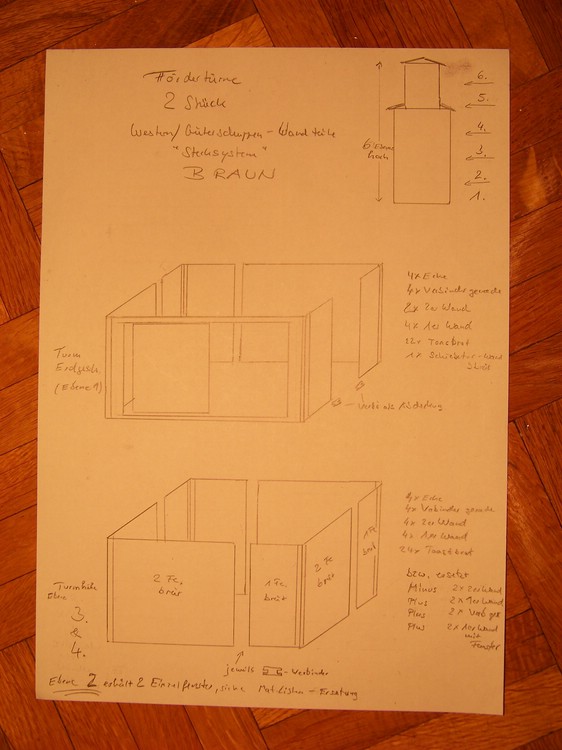 Fördertürme
2 Stück
Western/Güterschuppen-Wandteile
"Stecksystem"
BRAUN
6 Ebenen
hoch
6.
5.
4.
3.
2.
1.
4x Ecke
4x Verbinder gerade
2x 2er Wand
4x 1er Wand
22x Tanzbrot
1x Schiebetür-Wand
Turm
Erdgesch.
(Ebene 1)
4x Ecke
4x Verbinder gerade
4x 2er Wand
4x 1er Wand
24x Tanzbrot
2 Fe.
breit
1 Fe.
breit
2 Fe.
breit
1 Fe.
breit
bzw. ersetzt
Minus 2x 2er Wand
Plus 2x 1er Wand
Plus 2x Verb ger
Plus 2x 1er Wand
mit
Fenster
Turmhöhe
Ebene
3.
&
4.
jeweils -Verbinder
Ebene 2 erhält 2 Einzelfenster, siehe Mat.Listen-Ersatzung